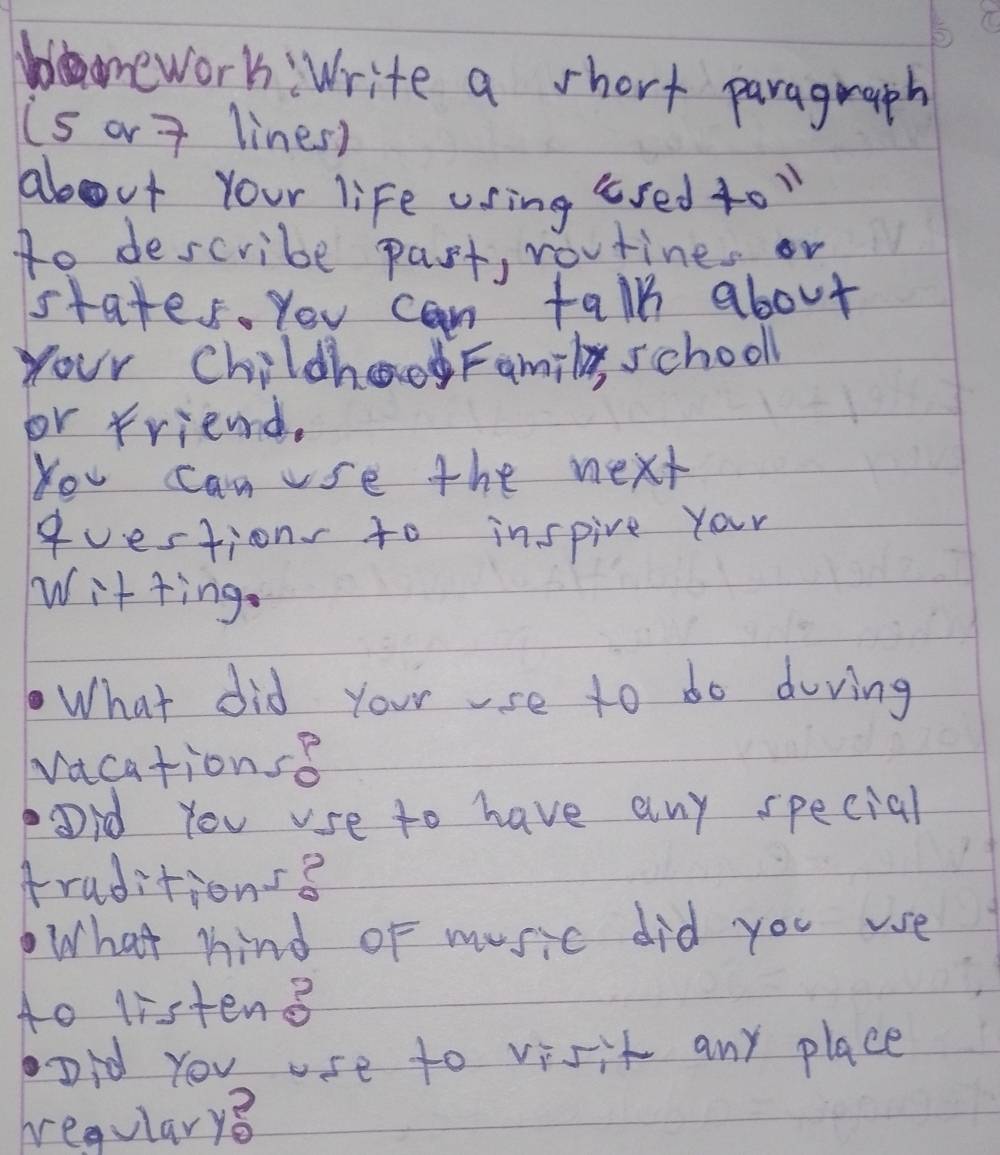 Homework: Write a short paragraph
(5 or 7 lines)
about Your life using "Used to"
to describe past, routines or
states. You can talk about
Your Childhood Family, school
or Friend.
You can use the next
questions to inspire Your
Witting.
• What did Your use to do during
vacations?
• Did You use to have any special
traditions?
• What kind OF music did you use
to listen?
• Did You use to visit any place
regulary?